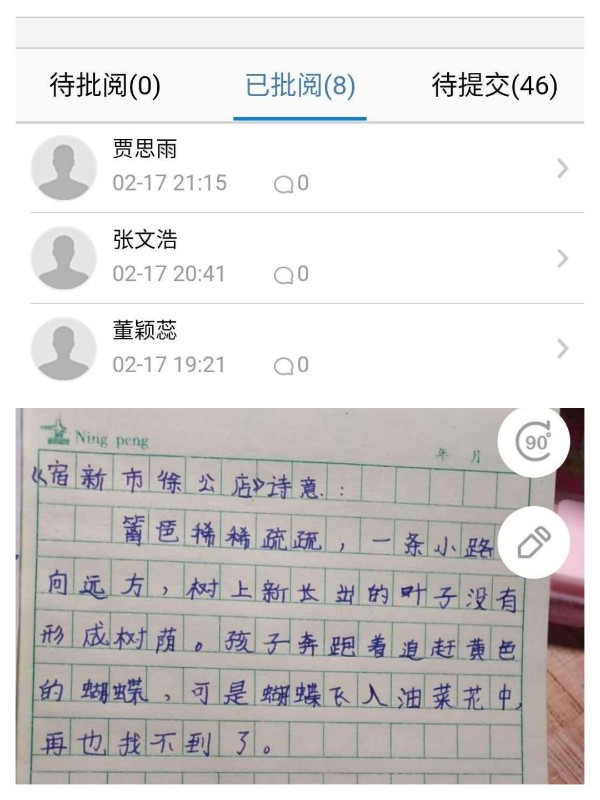 待批阅(0) 已批阅(8) 待提交(46)
贾思雨
02-17 21:15 0
张文浩
02-17 20:41 0
董颖蕊
02-17 19:21 0
Ning peng
年 月
90°
《宿新市徐公店》诗意.:
稀稀疏疏，一条小路
向远方，树上新长出的叶子没有
形成树荫。孩子奔跑着追赶黄色
的蝴蝶，可是蝴蝶飞入油菜花中,
再也找不到了。